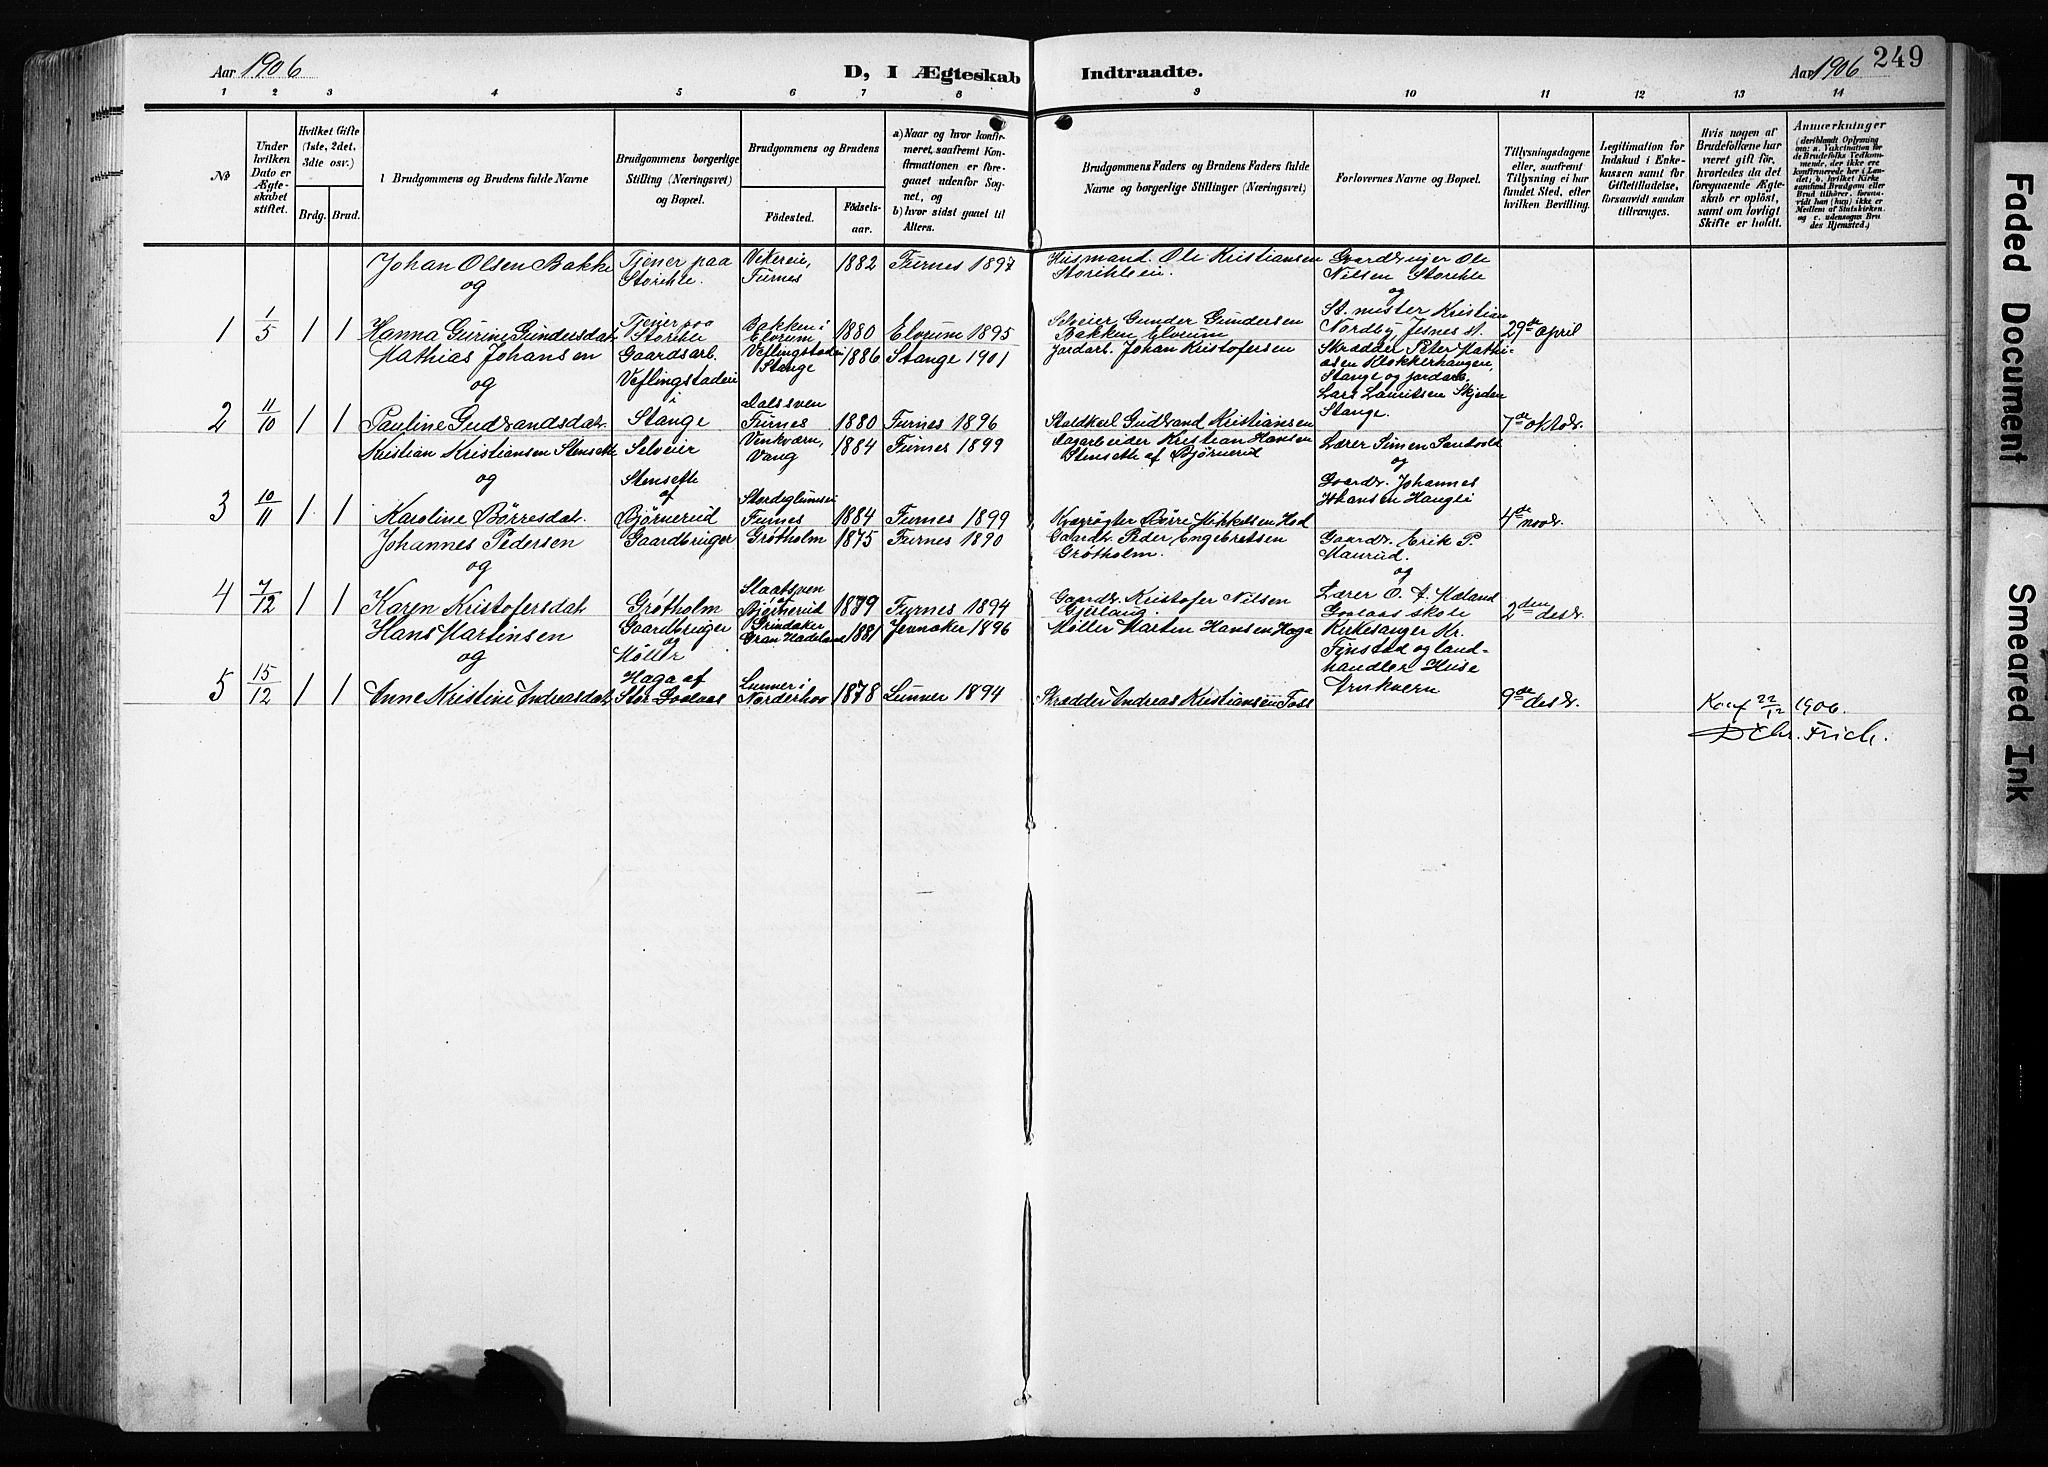 Aar 1906
D, I Ægteskab Indtraadte.
Aar 1906
249
1 2 3 4 5 6 7 8 9 10 11 12 13 14
No
Under hvilken Dato er Ægteskabet stiftet.
Hvilket Gifte (1ste, 2det, 3die osv.)
Brdg. Brud.
Brudgommens og Brudens fulde Navne
Brudgommens borgerlige Stilling (Næringsvei) og Bopæl.
Brudgommens og Brudens
Fødested.
Fødsels-aar.
a) Naar og hvor konfirmeret, saafremt Konfirmationen er foregaaet udenfor Sognet, og
b) hvor sidst gaaet til Alters.
Brudgommens Faders og Brudens Faders fulde Navne og borgerlige Stillinger (Næringsvei)
Forlovernes Navne og Bopæl.
Tillysningsdagene eller, saafremt Tillysning ei har fundet Sted, efter hvilken Bevilling.
Legitimation for Indskud i Enkekassen samt for Giftetilladelse, forsaavidt saadan tiltrænges.
Hvis nogen af Brudefolkene har været gift før, hvorledes da det foregaaende Ægteskab er opløst, samt om lovligt Skifte er holdt.
Anmærkninger
(deriblandt Oplysning om: a. Vakcination for de Brudefolks Vedkommende, der ikke ere konfirmerede her i Landet; b. hvilket Kirkesamfund Brudgom eller Brud tilhører, forsaavidt han (hun) ikke er Medlem af Statskirken, og c. udensogns Brudes Hjemsted.)
Johan Olsen Bakke Tjener paa Storihle. Vikereie, Furnes 1882 Furnes 1897 Husmand. Ole Kristiansen Storihleeie. Gaardbruger Ole Nilsen Storihle
og
1 1/5 1 1 Hanna Gurine Gundersdat. Tjener paa Storihle Bakken i Elvrum 1880 Elvrum 1895 Selveier Gunder Gundersen Bakken Elvrum St. mester Kristian Nordby, Jesnes st. 29de april
Mathias Johansen Gaardsarb. Veflingstadeie Stange 1886 Stange 1901 Jordarb. Johan Kristofersen Skrædder Peter Mathisen Klokkerhaugen, Stange og jordarb. Lars Lauritsen Skjeden Stange.
og Veflingstadeie i Stange
2 11/10 1 1 Pauline Gudbrandsdat. Furnes 1880 Furnes 1896 Staldkarl Gudbrand Kristiansen 7de oktbr.
Kristian Kristiansen Stensette Selveier Vang 1884 Furnes 1899 Dagarbeider Kristian Hansen Stensette af Bjørnerud Lærer Simen Sandvold
og Stensette af Bjørnerud og Gaardbr. Johannes Johansen Haugli
3 10/11 1 1 Karoline Børresdat. Furnes 1884 Furnes 1899 Kvægrøgter Børre Mikkelsen 4de novbr.
Johannes Pedersen Gaardbruger Grøtholm 1875 Furnes 1890 Gaardbr. Peder Engebretsen Grøtholm. Gaardbr. Erik P. Maurud.
og Grøtholm og
4 7/12 1 1 Karen Kristofersdat. Bjørnerud 1879 Furnes 1894 Gaardbr. Kristofer Nilsen Gjerlaug. Lærer O. A. Mæland Gaalaas skole 2den desbr.
Hans Martinsen Gaardbruger og Møller Grindaker Gran Hadeland 1881 Jevnaker 1896 Møller Martin Hansen Haga Kirkesanger Kr. Finstad og landhandler Huse
og Haga af Stor-Gaalaas
5 15/12 1 1 Anne Kristine Andreasdat. Lunner i Norderhov 1878 Lunner 1894 Skrædder Andreas Kristiansen Foss 9de desbr.
Konf 22/12 1906.
D Chr. Frich.
Faded Document
Smeared Ink